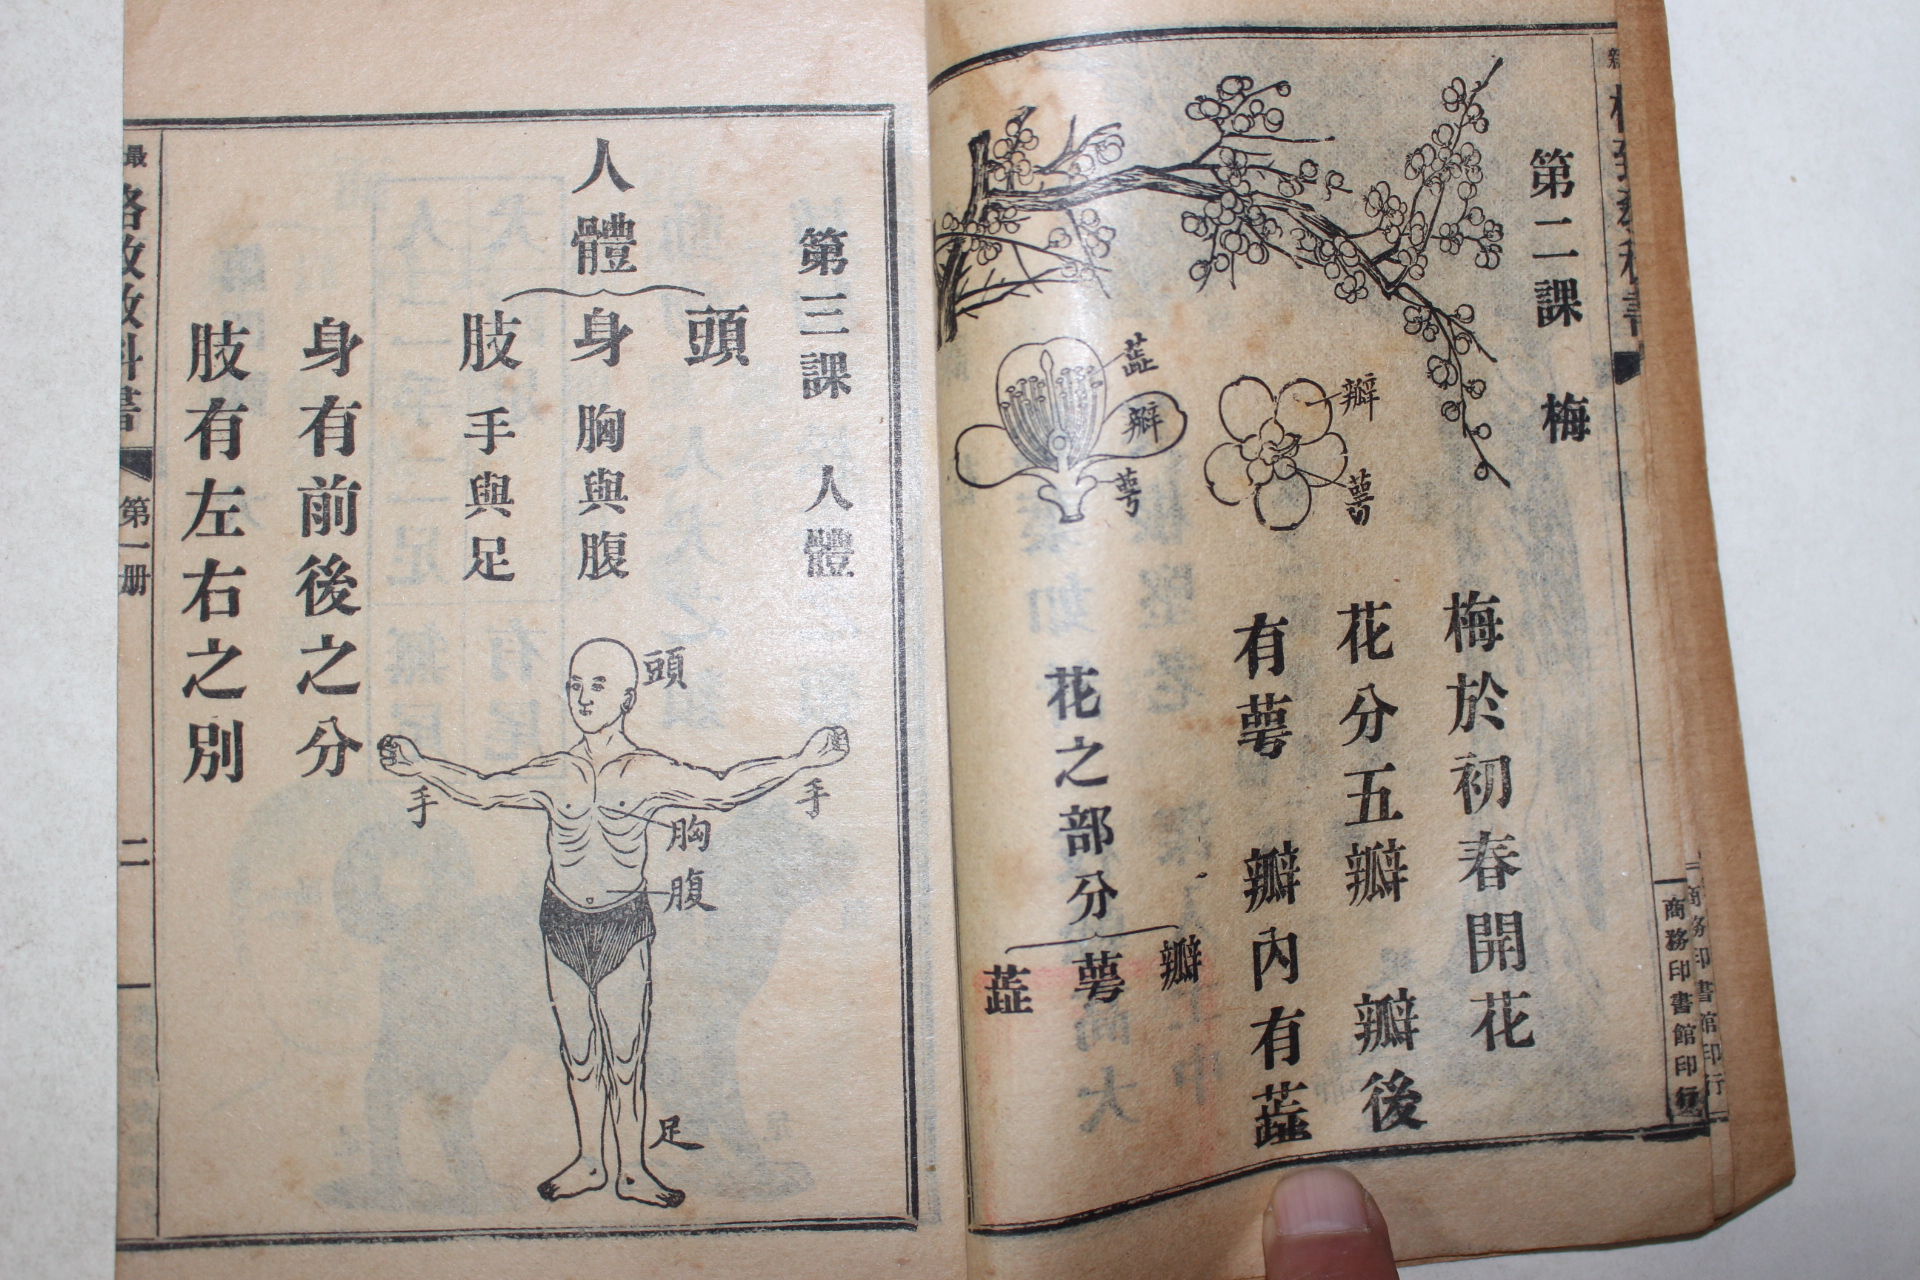 第二課 梅
瓣
萼
蕋
瓣
萼
梅於初春開花
花分五瓣 瓣後
有萼 瓣內有蕋
花之部分
瓣
萼
蕋
商務印書館印行
第三課 人體
人體
頭
身 胸與腹
肢 手與足
頭
手
手
胸
腹
足
身有前後之分
肢有左右之別
最
格致教科書
第一册
二